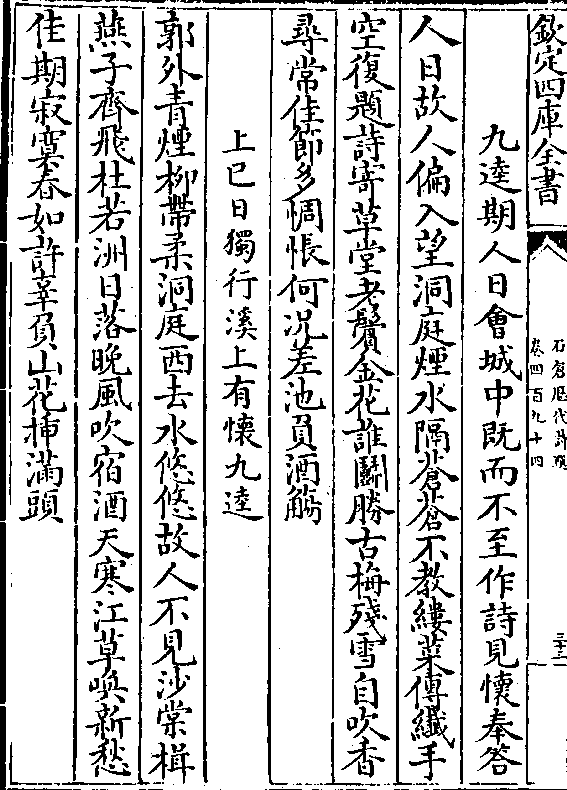 欽定四庫全書
石倉歷代詩選
卷四百九十四
三十三
九逵期人日會城中既而不至作詩見懷奉答
人日故人偏入望洞庭煙水隔蒼蒼不教縷菜傳纖手
空復題詩寄草堂老鬢金花誰鬬勝古梅殘雪自吹香
尋常佳節多惆悵何况差池負酒觴
上巳日獨行溪上有懷九逵
郭外青煙柳帶柔洞庭西去水悠悠故人不見沙棠楫
燕子齊飛杜若洲日落晚風吹宿酒天寒江草喚新愁
佳期寂寞春如許辜負山花挿滿頭